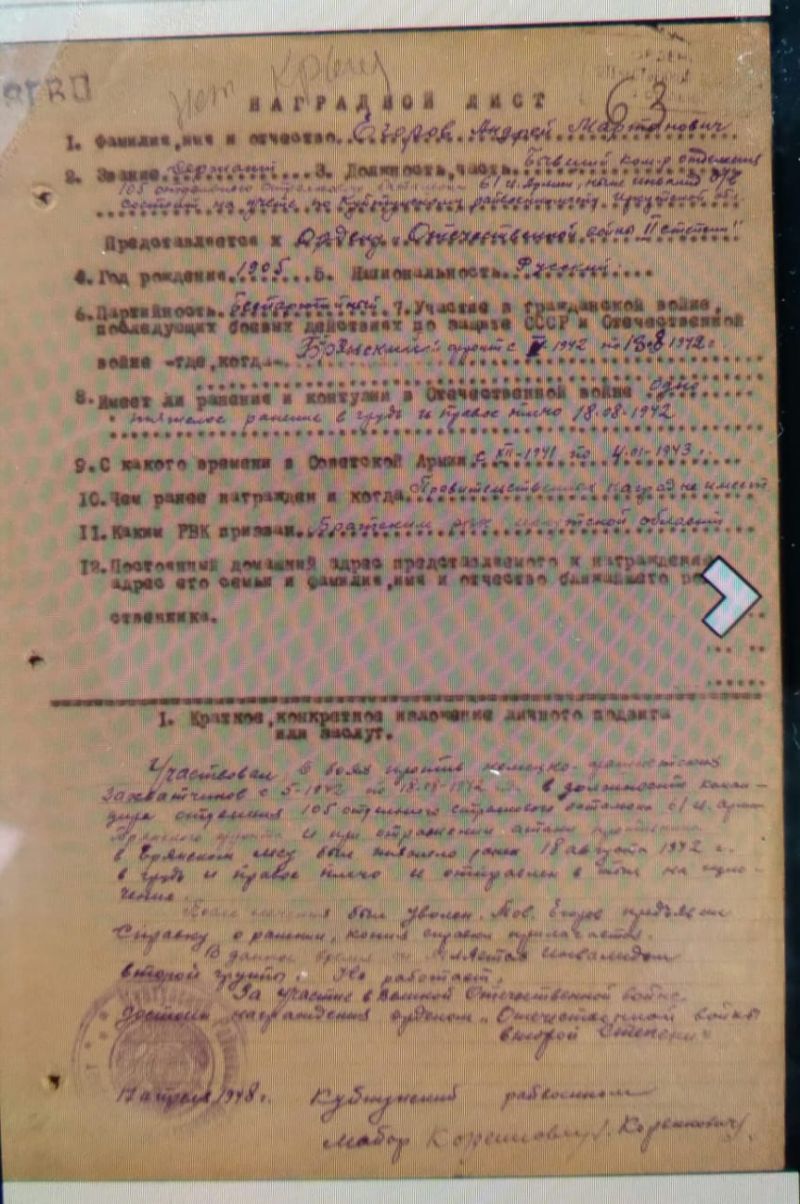 63
НАГРАДНОЙ ЛИСТ
1. Фамилия, имя и отчество Егоров Андрей Мартынович
2. Звание Сержант 3. Должность, часть Бывший ком-р отделения
105 отдельного стрелкового батальона 61 й армии, ныне инвалид О/В
состоит на учете по Куйтунскому райвоенкомату Иркутской
Представляется к Ордену Отечественной войны II степени"
4. Год рождения 1905 5. Национальность Русский
6. Партийность беспартийный 7. Участие в гражданской войне,
последующих боевых действиях по защите СССР и Отечественной
войне -где, когда- Брянский фронт с V 1942 по 18 8 1942 г
8. Имеет ли ранение и контузии в Отечественной войне одно
тяжелое ранение в грудь и правое плечо 18.08.1942
9. С какого времени в Советской Армии с XII-1941 по 4.01-1943 г.
10. Чем ранее награжден и когда Правительственных наград не имеет
11. Каким РВК призван Братским рвк Иркутской области
12. Постоянный домашний адрес представляемого к награждению
адрес его семьи и фамилия, имя и отчество ближайшего род
ственника.
I. Краткое, конкретное изложение личного подвига
или заслуг.
Участвовал в боях против немецко-фашистских
захватчиков с 5-1942 по 18-08-1942 г. в должности коман-
дира отделения 105 отдельного стрелкового батальона 61 й арми
Брянского фронта и при отражении атаки противника
в Брянском лесу был тяжело ранен 18 августа 1942 г.
в грудь и правое плечо и отправлен в тыл на изле-
чение.
После лечения был уволен. Тов. Егоров предъявил
справку о ранении, копия справки прилагается.
В данное время является инвалидом
второй группы. Не работает.
За участие в Великой Отечественной войне
достоин награждения орденом „Отечественной войны
второй степени"
17 апреля 1948 г. Куйтунский райвоенком
майор /Коренкович/